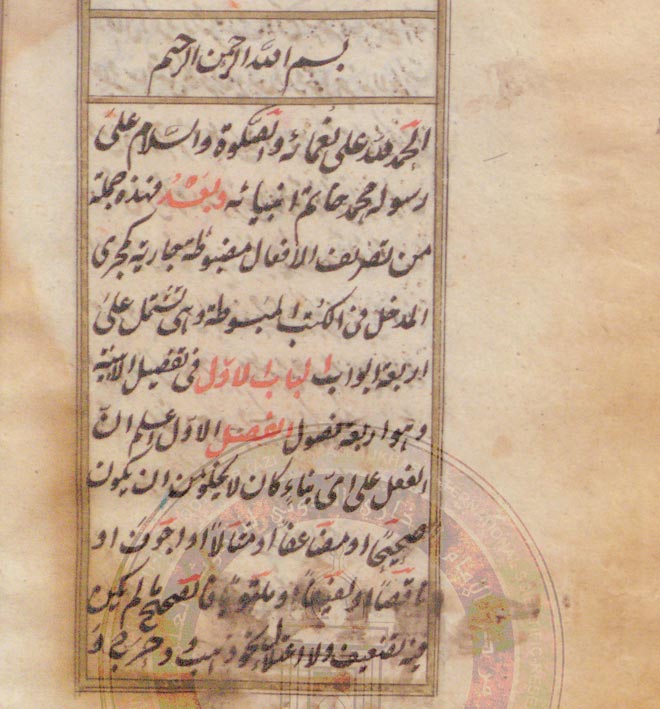 بسم الله الرحمن الرحيم
الحمد لله على نعمائه والصلوة والسلام على
رسوله محمد خاتم انبيائه وبعد فهذه جملة
من تصريف الافعال مضبوطة جارية مجرى
المدخل فى الكتب المبسوطة وهى تشتمل على
اربعة ابواب الباب الاول فى تفصيل الابنية
وهو اربعة فصول الفصل الاول اعلم ان
الفعل على اى بناء كان لا يخلو من ان يكون
صحيحا او مضاعفا او مثالا او اجوف او
ناقصا او لفيفا او ملتويا فالصحيح ما لم يكن
فيه تضعيف ولا اعتلال نحو ذهب وحرب و